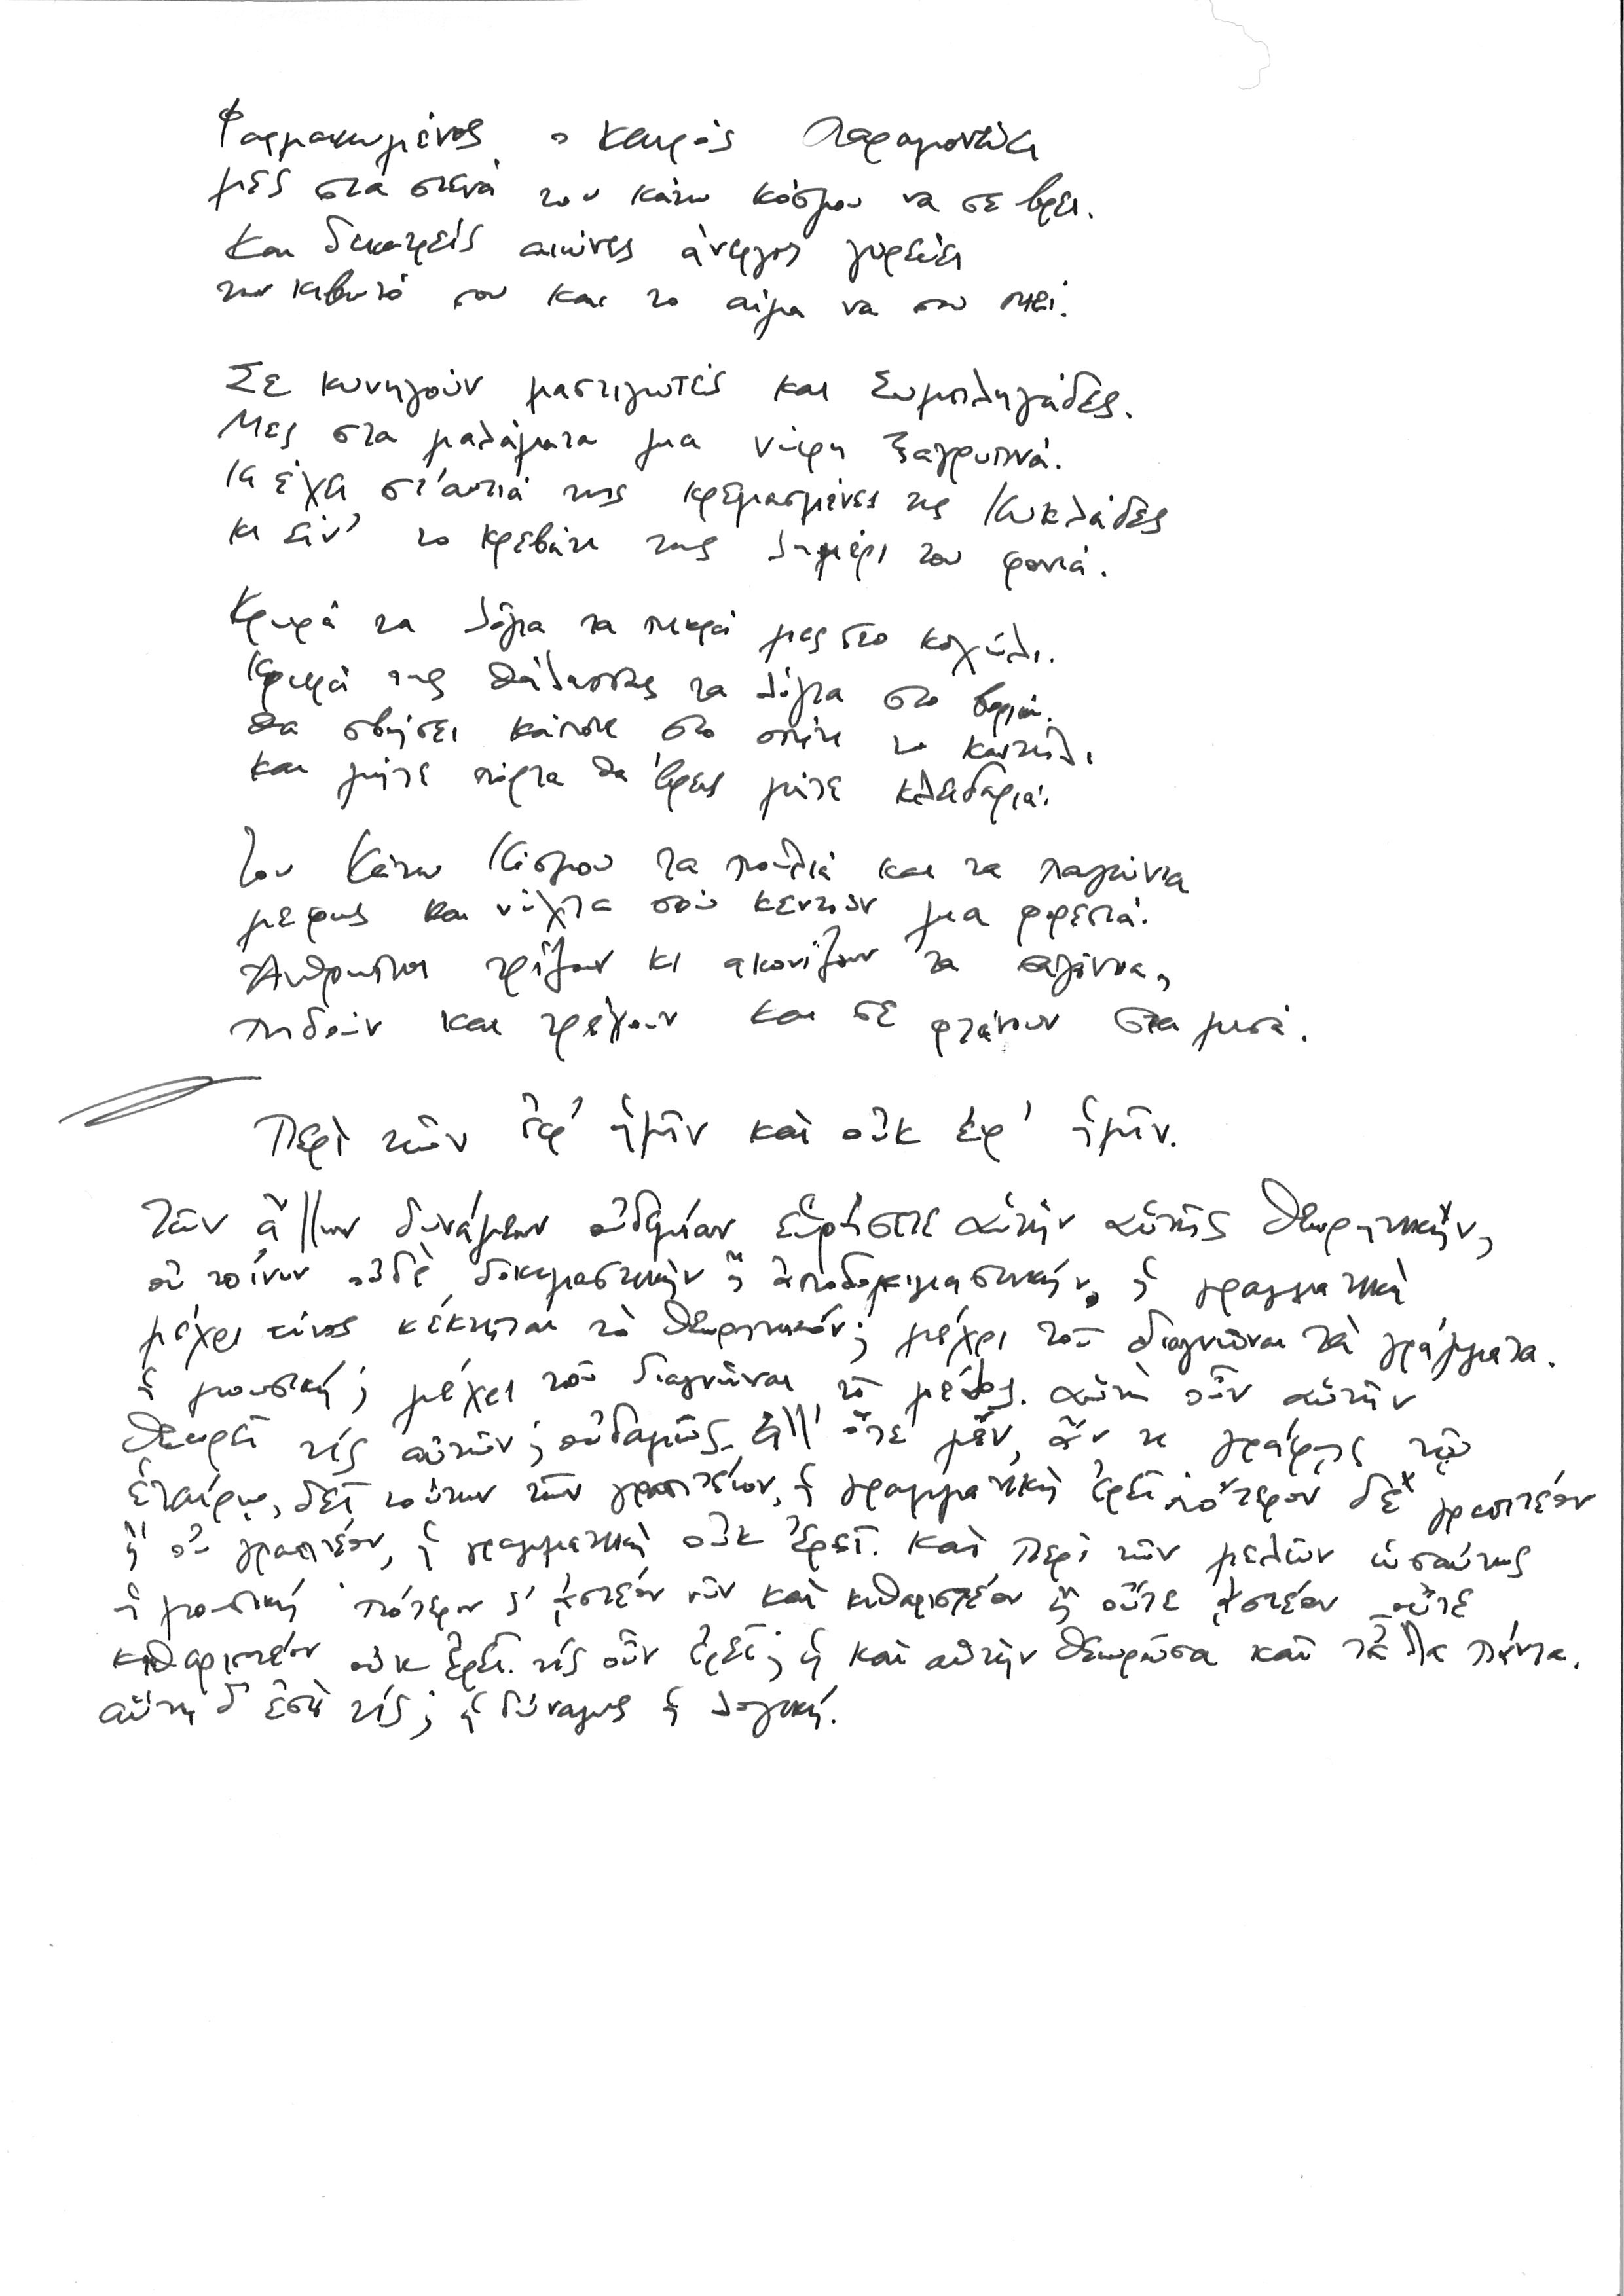 Φαρμακωμένος ο καιρός παραμονεύει
μες στα στενά του κάτω κόσμου να σε βρει.
Και δεκατρείς αιώνες άνεργος γυρεύει
την κιβωτό σου και το αίμα να σου πιει.
Σε κυνηγούν μαστιγωτές και Συμπληγάδες.
Μες στα μαλάματα μια νύφη ξαγρυπνά.
Κι έχει στ' αυτιά της κρεμασμένες τις Κυκλάδες
κι είν' το κρεβάτι της λημέρι του φονιά.
Κρυφά τα λόγια τα πικρά μες στο κοχύλι.
Κρυφά της θάλασσας τα λόγια στο βοριά.
Θα σβήσει κάποτε στο σπίτι το καντήλι
και μήτε πόρτα θα 'βρεις μήτε κλειδαριά.
Του Κάτω Κόσμου τα πουλιά και τα παγώνια
μερας και νύχτα σού κεντούν μια φορεσιά.
Άνθρωποι τρίζουν κι ακονίζουν τα σαγόνια,
πηδούν και τρέχουν και σε φτάνουν στα μισά.
Περὶ τῶν ἐφ' ἡμῖν καὶ οὐκ ἐφ' ἡμῖν.
Τῶν ἄλλων δυνάμεων οὐδεμίαν εὑρήσετε αὐτὴν αὑτῆς θεωρητικήν,
οὐ τοίνυν οὐδὲ δοκιμαστικὴν ἢ ἀποδοκιμαστικήν. ἡ γραμματικὴ
μέχρι τίνος κέκτηται τὸ θεωρητικόν; μέχρι τοῦ διαγνῶναι τὰ γράμματα.
ἡ μουσική; μέχρι τοῦ διαγνῶναι τὸ μέλος. αὐτὴ οὖν αὑτὴν
θεωρεῖ τίς αὐτῶν; οὐδαμῶς. ἀλλ' ὅτε μέν, ἄν τι γράφῃς τῷ
ἑταίρῳ, δεῖ τούτων τῶν γραπτέων, ἡ γραμματικὴ ἐρεῖ· πότερον δὲ γραπτέον
ἢ οὐ γραπτέον, ἡ γραμματικὴ οὐκ ἐρεῖ. καὶ περὶ τῶν μελῶν ὡσαύτως
ἡ μουσική· πότερον δ' ᾀστέον νῦν καὶ κιθαριστέον ἢ οὔτε ᾀστέον οὔτε
κιθαριστέον οὐκ ἐρεῖ. τίς οὖν ἐρεῖ; ἡ καὶ αὑτὴν θεωροῦσα καὶ τἆλλα πάντα.
αὕτη δ' ἐστὶ τίς; ἡ δύναμις ἡ λογική.